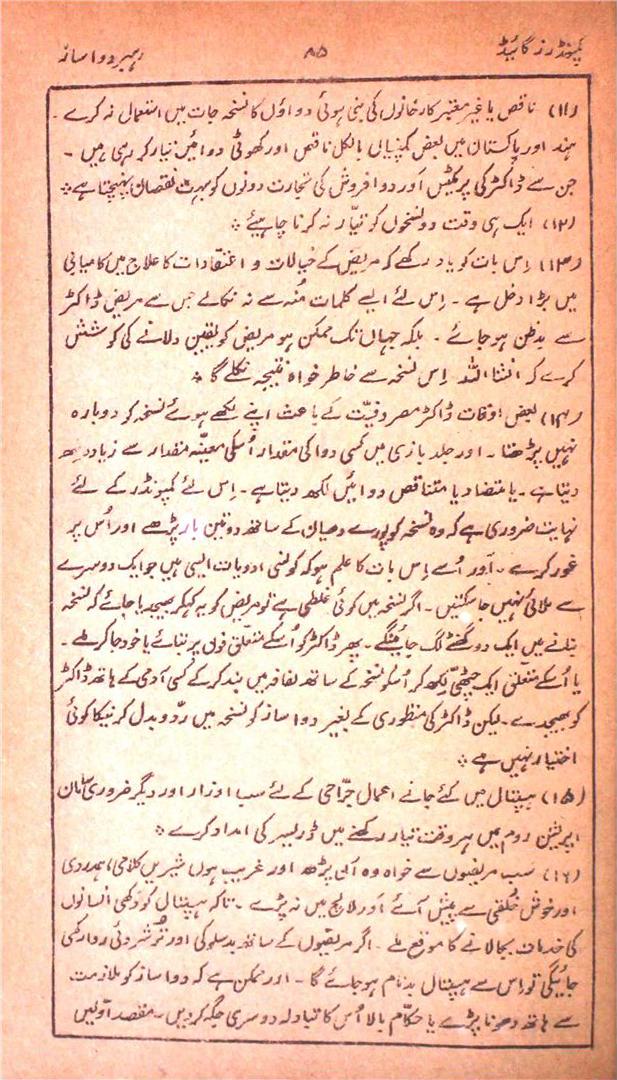 کمپونڈرز گائیڈ ۸۵ رہبر دوا ساز
(۱۱) ناقص یا غیر معتبر کارخانوں کی بنی ہوئی دواؤں کا نسخہ جات میں استعمال نہ کرے ۔
ہند اور پاکستان میں بعض کمپنیاں بالکل ناقص اور کھوٹی دوائیں تیار کر رہی ہیں ۔
جن سے ڈاکٹر کی پریکٹیس اور دوا فروش کی تجارت دونوں کو بہت نقصان پہنچتا ہے ؞
(۱۲) ایک ہی وقت دو نسخوں کو تیار نہ کرنا چاہیئے ؞
(۱۳) اِس بات کو یاد رکھے کہ مریض کے خیالات و اعتقادات کا علاج میں کامیابی
میں بڑا دخل ہے ۔ اِس لئے ایسے کلمات مُنہ سے نہ نکالے جس سے مریض ڈاکٹر
سے بدظن ہو جائے ۔ بلکہ جہاں تک ممکن ہو مریض کو یقین دلانے کی کوشش
کرے کہ انشا اللہ اِس نسخہ سے خاطر خواہ نتیجہ نکلے گا ؞
(۱۴) بعض اوقات ڈاکٹر مصروفیّت کے باعث اپنے لکھے ہوئے نسخہ کو دوبارہ
نہیں پڑھتا ۔ اور جلد بازی میں کسی دوا کی مقدار اُسکی معیّنہ مقدار سے زیادہ لکھ
دیتا ہے ۔ یا متضاد یا متناقص دوائیں لکھ دیتا ہے ۔ اِس لئے کمپونڈر کے لئے
نہایت ضروری ہے کہ وہ نسخہ کو پورے دھیان کے ساتھ دو تین بار پڑھے اور اُس پر
غور کرے ۔ اَور اُسے اِس بات کا علم ہو کہ کونسی ادویات ایسی ہیں جو ایک دوسرے
سے ملائی نہیں جا سکتیں ۔ اگر نسخہ میں کوئی غلطی ہے تو مریض کو یہ کہکر بھیجدیا جائے کہ نسخہ
بنانے میں ایک دو گھنٹے لگ جائینگے ۔ پھر ڈاکٹر کو اُسکے متعلّق فون پر بتائے یا خود جا کر ملے ۔
یا اُسکے متعلّق ایک چٹھی لکھ کر اُسکو نسخہ کے ساتھ لفافہ میں بند کر کے کسی آدمی کے ہاتھ ڈاکٹر
کو بھیجدے ۔ لیکن ڈاکٹر کی منظوری کے بغیر دوا ساز کو نسخہ میں ردّ و بدل کرنیکا کوئی
اختیار نہیں ہے ؞
(۱۵) ہسپتال میں کئے جانے اعمال جرّاحی کے لئے سب اوزار اور دیگر ضروری سامان
اپریشن روم میں ہر وقت تیار رکھنے میں ڈریسر کی امداد کرے ؞
(۱۶) سَب مریضوں سے خواہ وہ اَن پڑھ اور غریب ہوں شیریں کلامی، ہمدردی
اور خوش خُلقی سے پیش آئے اَور لالچ میں نہ پڑے ۔ تاکہ ہسپتال کو دُکھی انسانوں
کی خدمات بجا لانے کا موقع ملے ۔ اگر مریضوں کے ساتھ بدسلوکی اور تُرشروئی روا رکھی
جائیگی تو اِس سے ہسپتال بدنام ہو جائے گا ۔ اور ممکن ہے کہ دوا ساز کو ملازمت
سے ہاتھ دھونا پڑے یا حکّامِ بالا اُس کا تبادلہ دوسری جگہ کر دیں ۔ مقصد اوّلیں